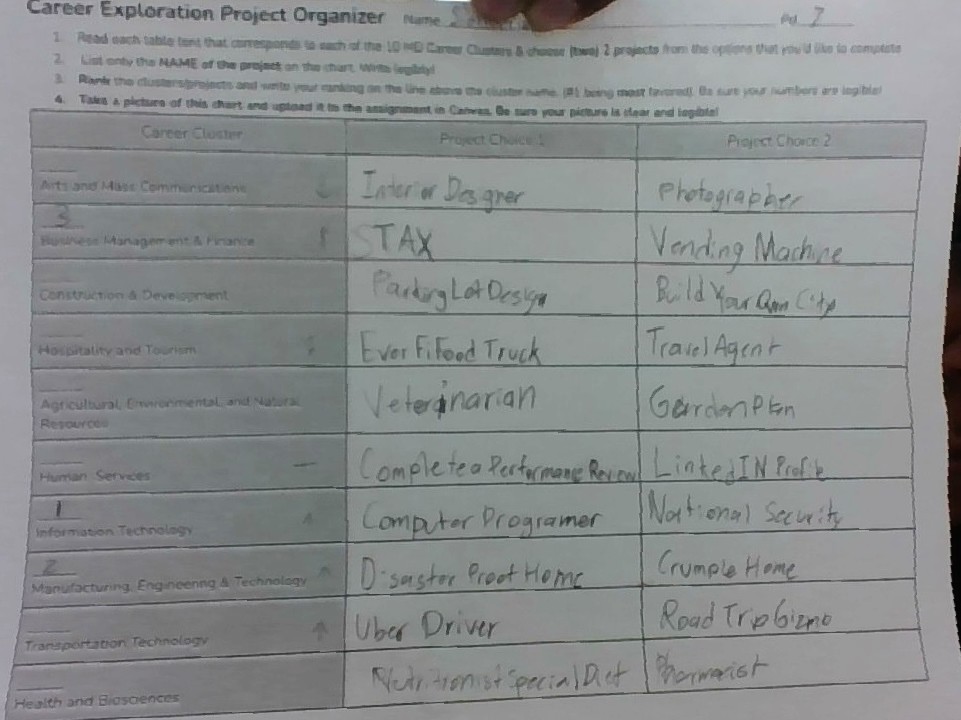 Career Exploration Project Organizer Name Pd. 7
1. Read each table tent that corresponds to each of the 10 MD Career Clusters & choose (two) 2 projects from the options that you'd like to complete
2. List only the NAME of the project on the chart. Write legibly!
3. Rank the clusters/projects and write your ranking on the line above the cluster name. (#1 being most favored). Be sure your numbers are legible!
4. Take a picture of this chart and upload it to the assignment in Canvas. Be sure your picture is clear and legible!
Career Cluster Project Choice 1 Project Choice 2
Arts and Mass Communications Interior Designer Photographer
3
Business Management & Finance TAX Vending Machine
Construction & Development Parking Lot Design Build Your Own City
Hospitality and Tourism Ever Fi Food Truck Travel Agent
Agricultural, Environmental, and Natural Veterinarian Garden Plan
Resources
Human Services Complete a Performance Review LinkedIN Profile
1
Information Technology Computer Programer National Security
2
Manufacturing, Engineering & Technology Disaster Proof Home Crumple Home
Transportation Technology Uber Driver Road Trip Gizmo
Health and Biosciences Nutritionist Special Diet Pharmacist